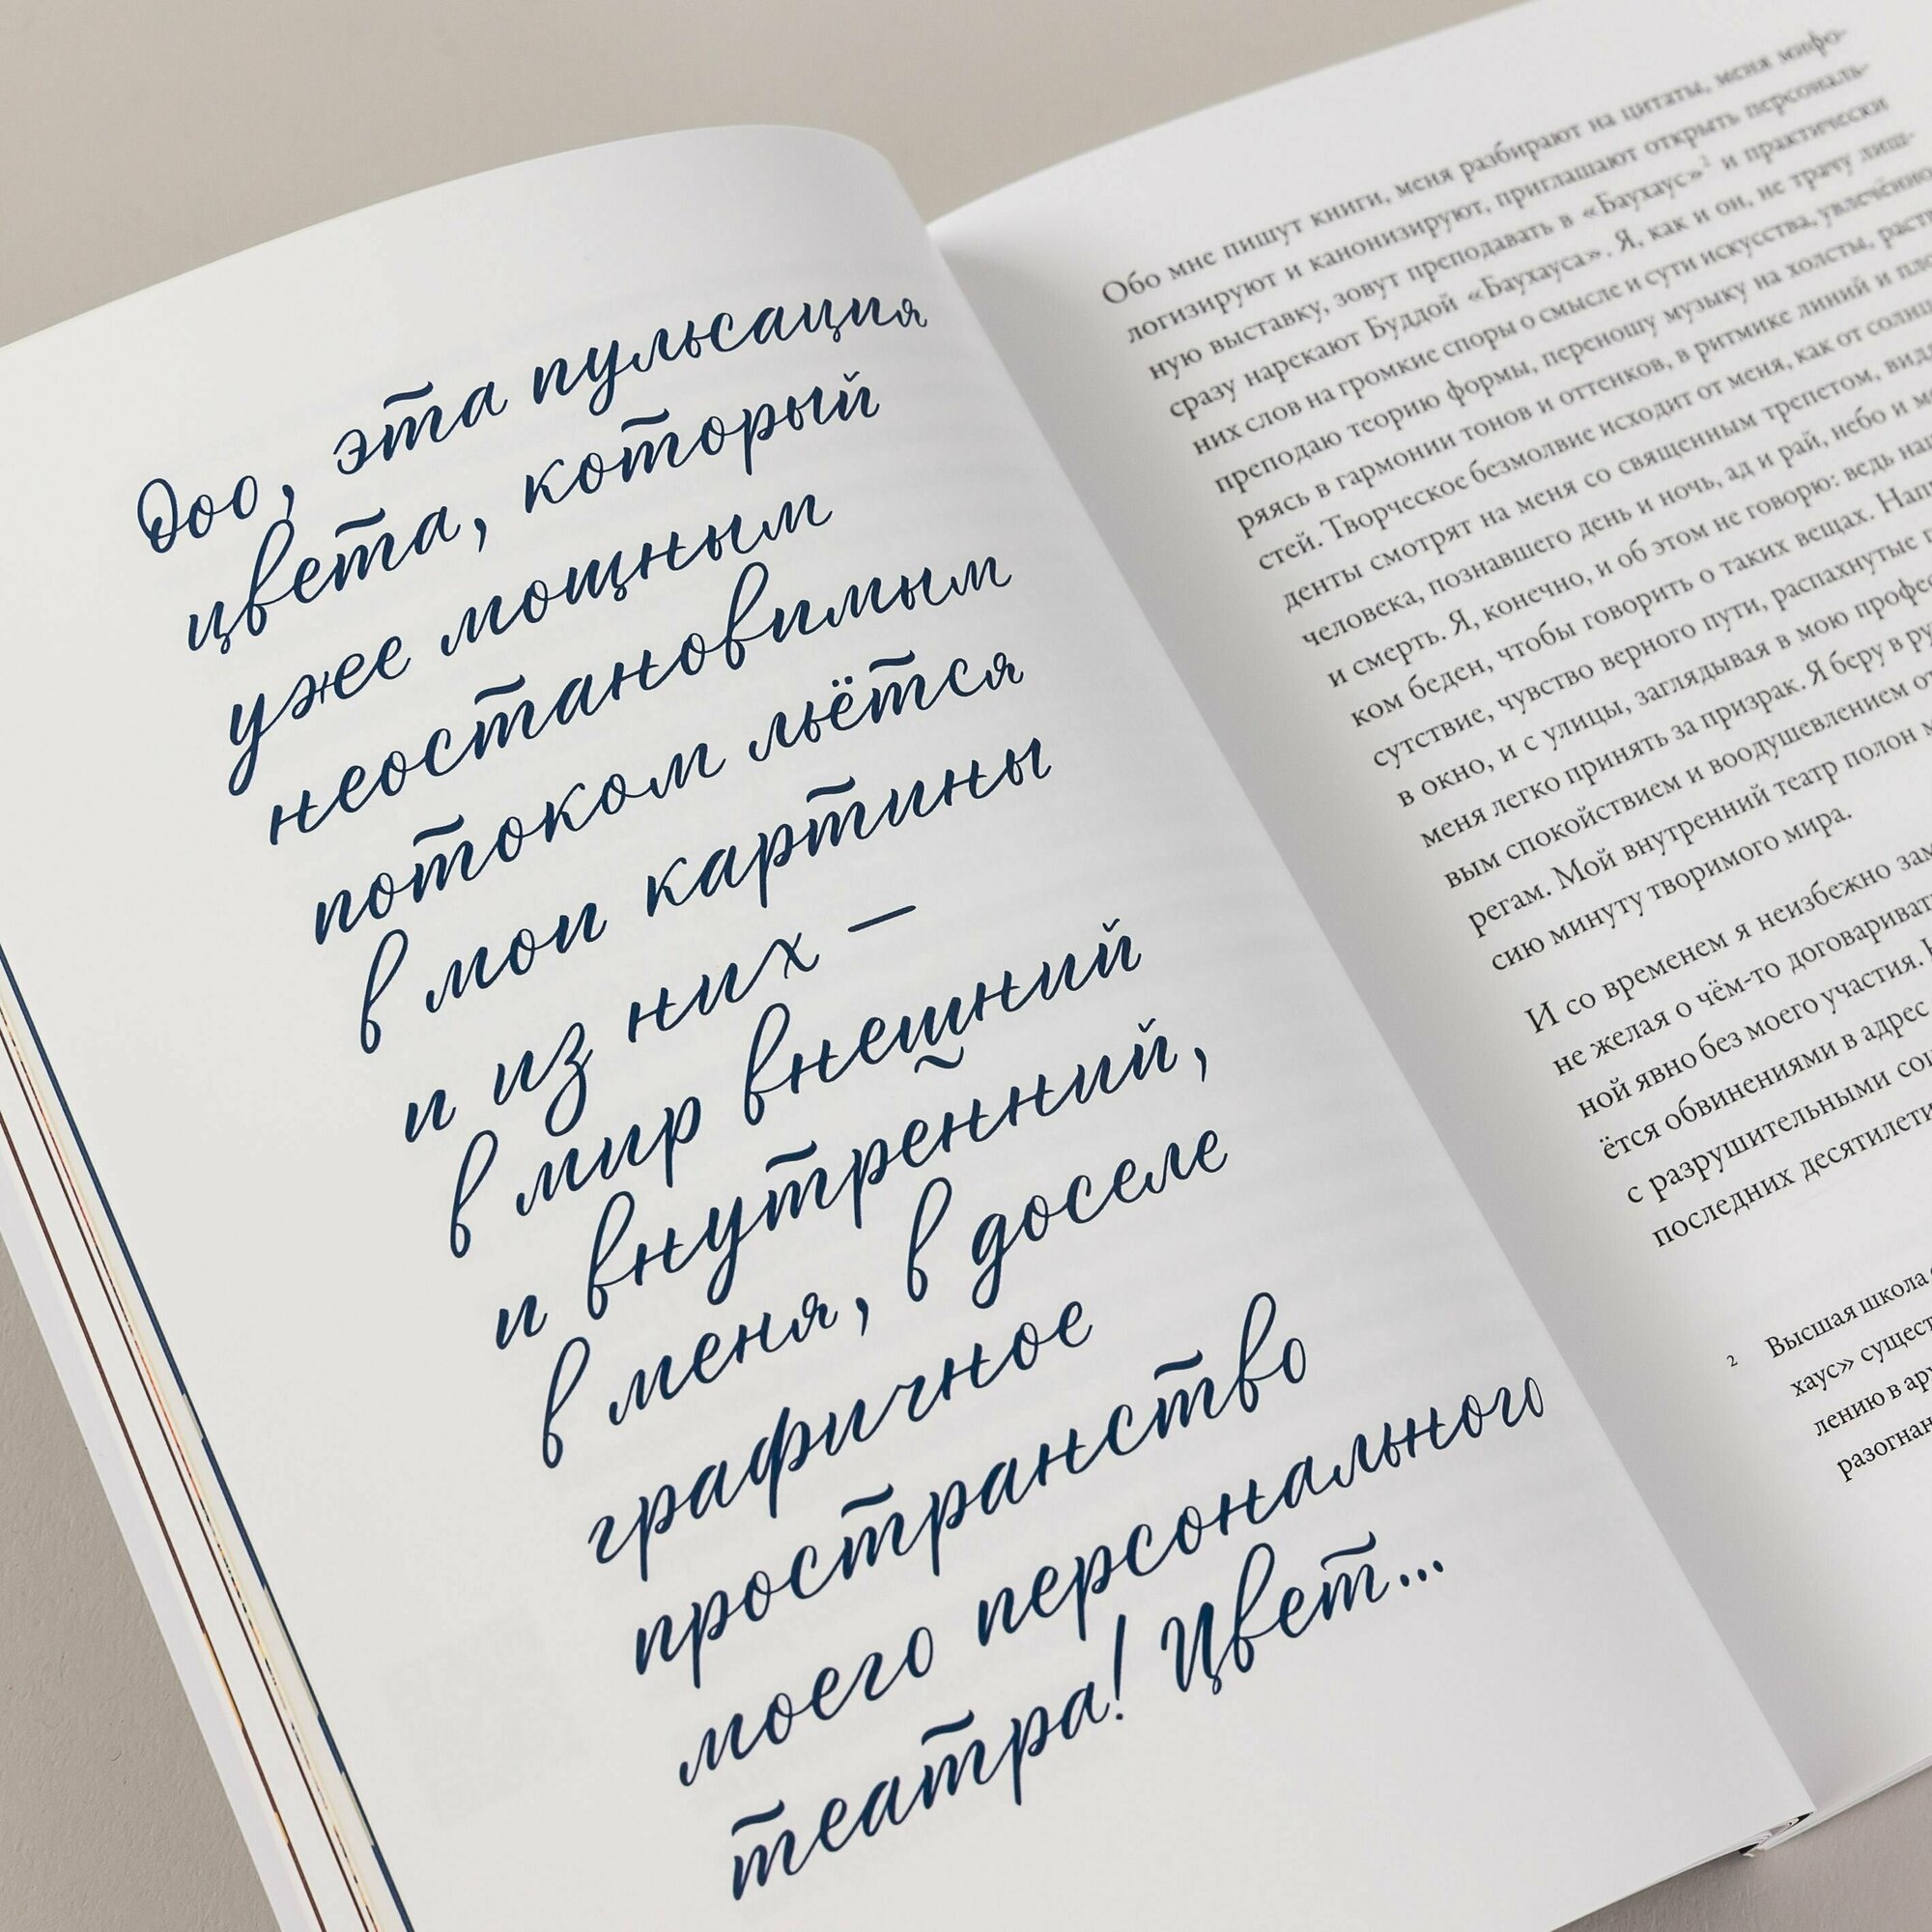 Ооо, эта пульсация
цвета, который
уже мощным
неостановимым
потоком льётся
в мои картины
и из них —
в мир внешний
и внутренний,
в меня, в доселе
графичное
пространство
моего персонального
театра! Цвет...
Обо мне пишут книги, меня разбирают на цитаты, меня мифо-
логизируют и канонизируют, приглашают открыть персональ-
ную выставку, зовут преподавать в «Баухаус»² и практически
сразу нарекают Буддой «Баухауса». Я, как и он, не трачу лиш-
них слов на громкие споры о смысле и сути искусства, увлечённо
преподаю теорию формы, переношу музыку на холсты,
ряясь в гармонии тонов и оттенков, в ритмике линий и
стей. Творческое безмолвие исходит от меня, как от
денты смотрят на меня со священным трепетом,
человека, познавшего день и ночь, ад и рай, небо и
и смерть. Я, конечно, и об этом не говорю: ведь
ком беден, чтобы говорить о таких вещах.
сутствие, чувство верного пути, распахнутые
в окно, и с улицы, заглядывая в мою
меня легко принять за призрак. Я беру в
вым спокойствием и воодушевлением
регам. Мой внутренний театр полон
сию минуту творимого мира.
И со временем я неизбежно
не желая о чём-то
ной явно без моего участия.
ётся обвинениями в адрес
с разрушительными
последних
2 Высшая школа
хаус»
лению в